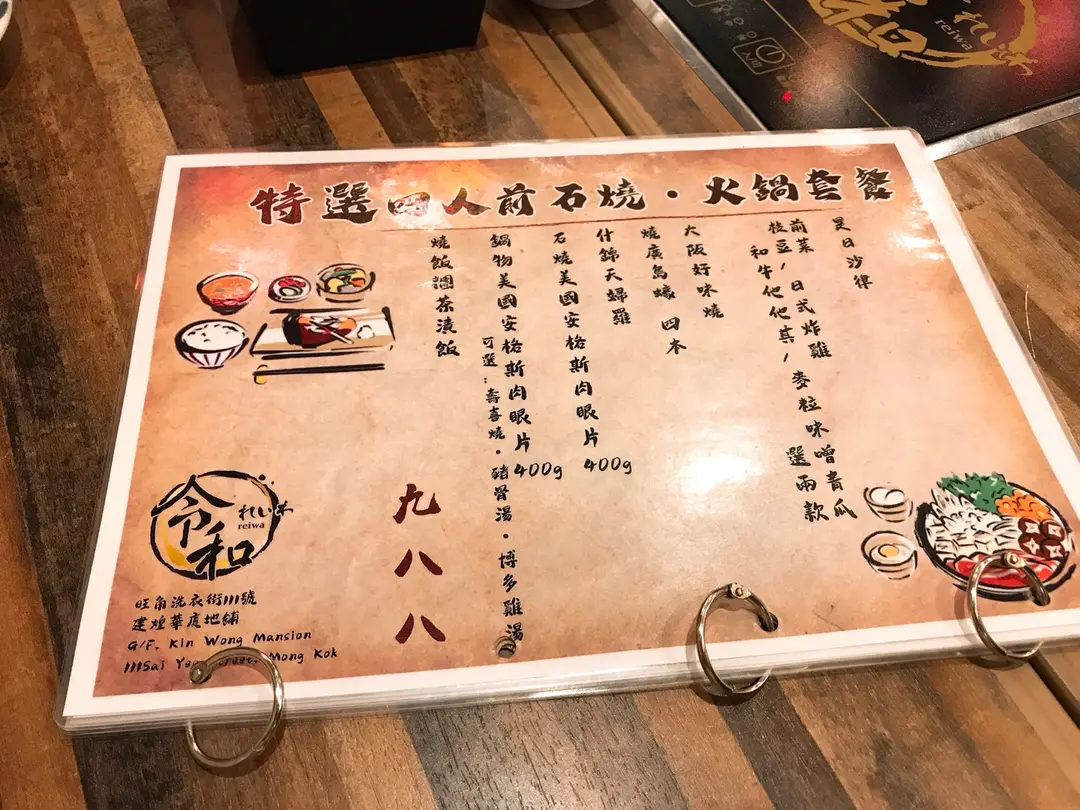 特選四人前石燒・火鍋套餐
昊日沙律
前菜 / 日式炸雞
枝豆 / 和牛他他其 / 麥粒味噌青瓜 選兩款
大阪好味燒
燒廣島蠔 四本
什錦天婦羅
石燒美國安格斯肉眼片 400g
鍋物美國安格斯肉眼片 400g
可選：壽喜燒・豬骨湯・博多雞湯
燒飯糰茶漬飯
九八八
令和
れいわ
reiwa
旺角洗衣街111號
建煌華廈地舖
G/F, Kin Wong Mansion
111Sai Mong Kok
れいわ
reiwa